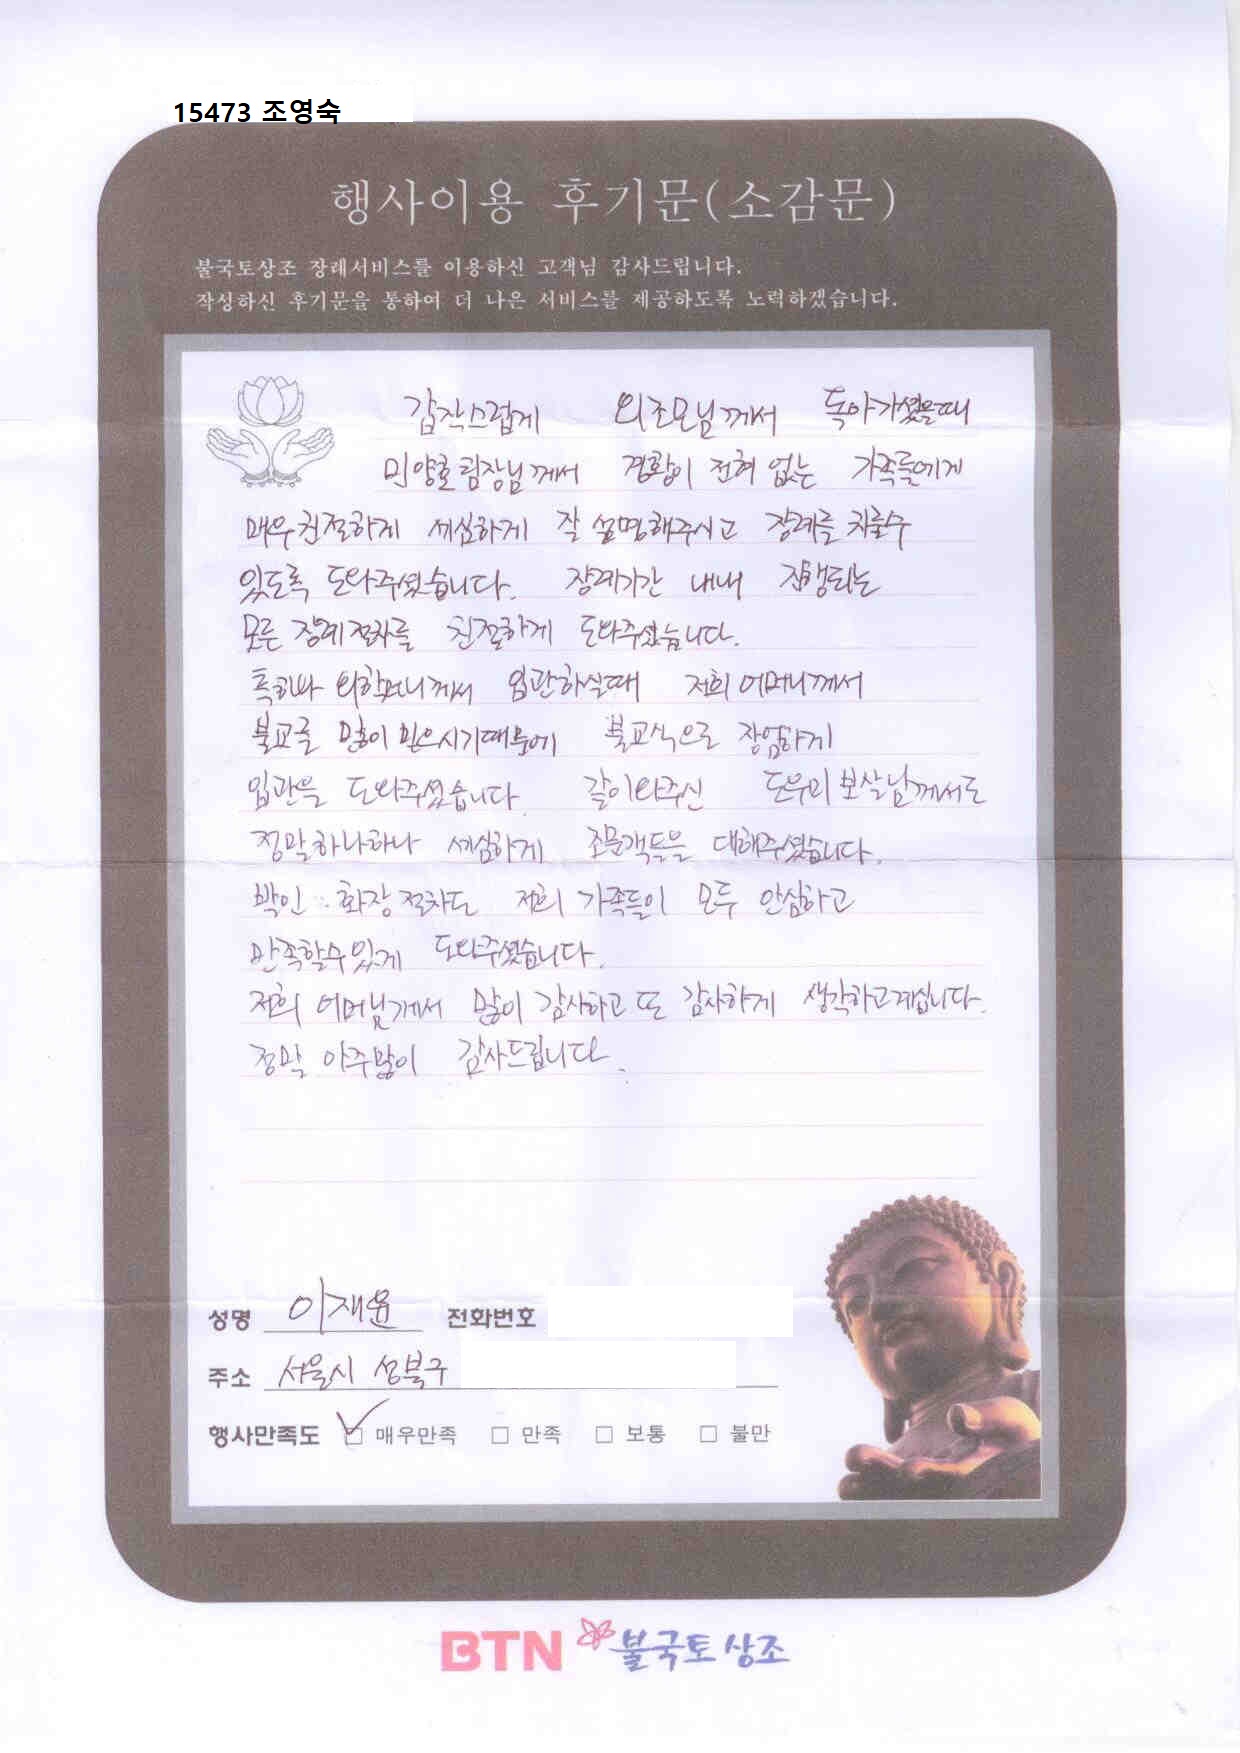 15473 조영숙
행사이용 후기문(소감문)
불국토상조 장례서비스를 이용하신 고객님 감사드립니다.
작성하신 후기문을 통하여 더 나은 서비스를 제공하도록 노력하겠습니다.
갑작스럽게 외조모님께서 돌아가셨을때
민양호팀장님께서 경황이 전혀 없는 가족들에게
매우친절하게 세심하게 잘 설명해주시고 장례를 치룰수
있도록 도와주셨습니다. 장례기간 내내 진행되는
모든 장례절차를 친절하게 도와주셨습니다.
특히나 외할머니께서 입관하실때 저희어머니께서
불교를 많이 믿으시기때문에 불교식으로 장엄하게
입관을 도와주셨습니다. 같이와주신 도우미 보살님께서도
정말하나하나 세심하게 조문객들을 대해주셨습니다.
발인 화장절차도 저희 가족들이 모두 안심하고
만족할수있게 도와주셨습니다.
저희 어머님께서 많이 감사하고 또 감사하게 생각하고계십니다.
정말 아주많이 감사드립니다.
성명 이재윤 전화번호
주소 서울시 성북구
행사만족도 매우만족 □ 만족 □ 보통 □ 불만
BTN 불국토상조